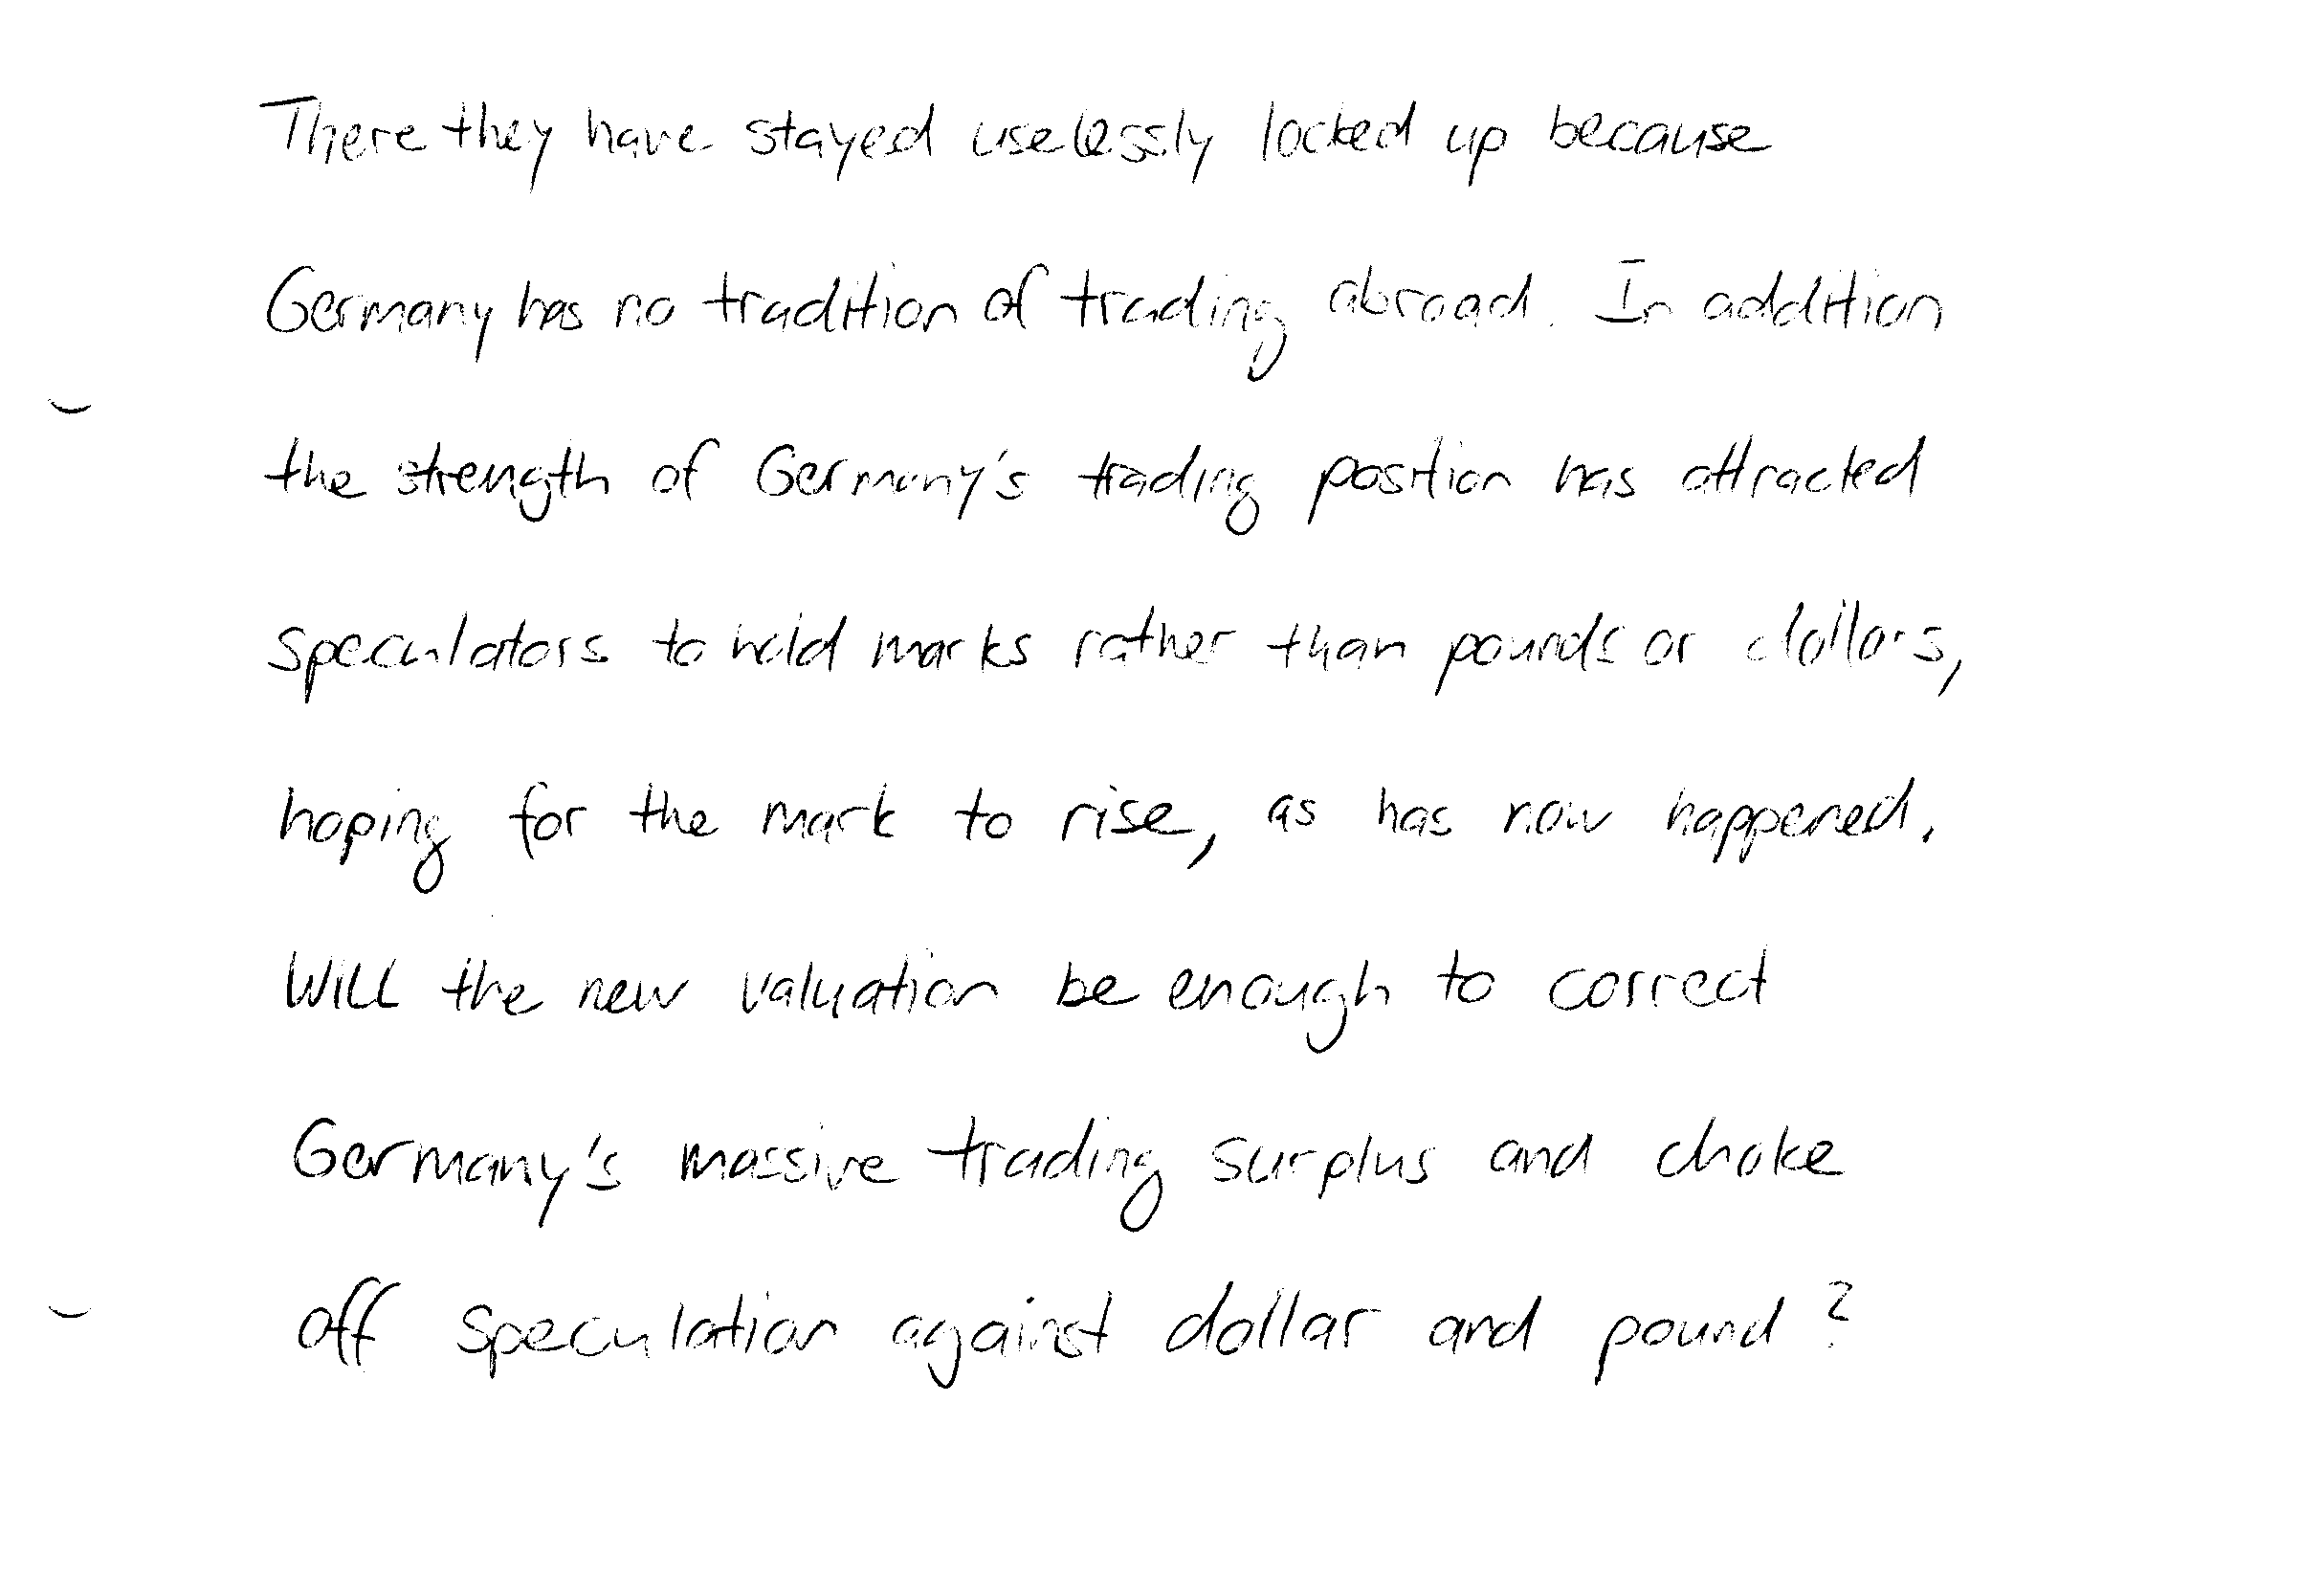 There they have stayed uselessly locked up because
Germany has no tradition of trading abroad. In addition
the strength of Germany's trading position has attracted
speculators to hold marks rather than pounds or dollars,
hoping for the mark to rise, as has now happened.
Will the new valuation be enough to correct
Germany's massive trading surplus and choke
off speculation against dollar and pound?